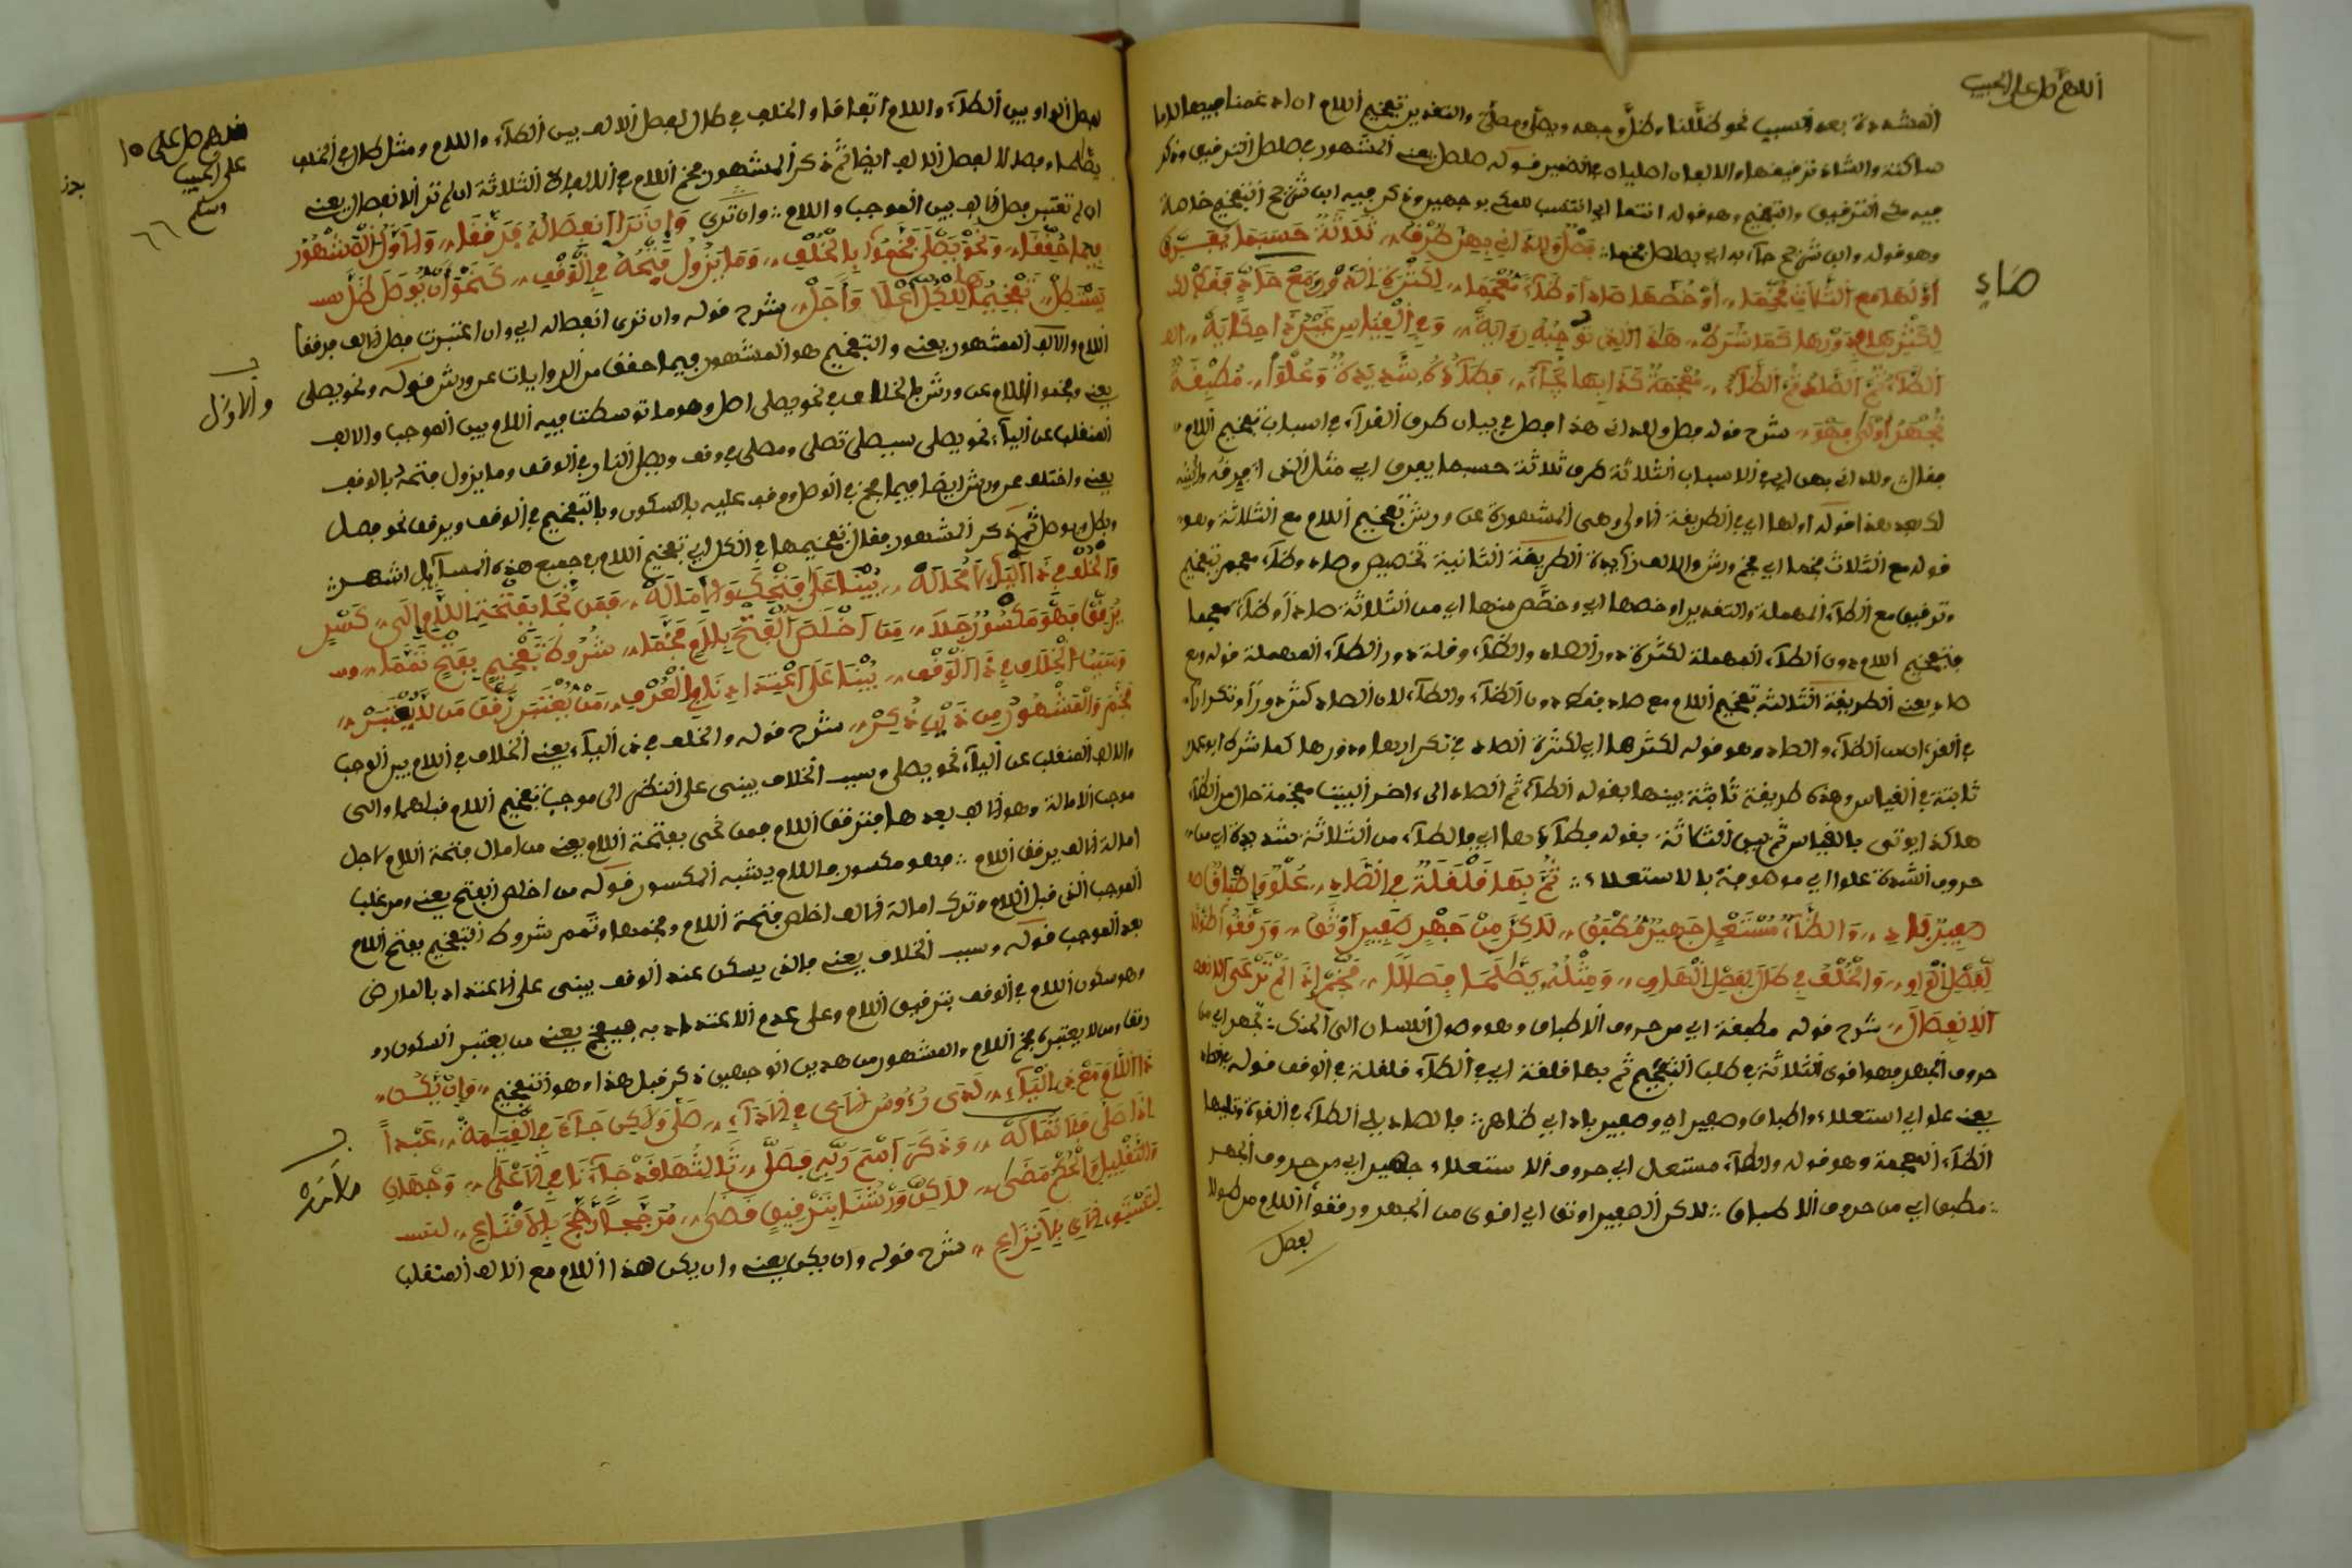 اللهم صل على الحبيب
المشددة بعد فسبب نحو ظللنا وظل وجهه ويصل ومصلى والتقدير تفخيم اللام ان ادغمنا فيها اللاما
ساكنة والشاذ ترقيقها والالفان اصليان في الضمير قوله صلصل يعنى المشهور في صلصل الترقيق وذكر
فيه مك الترقيق والتفخيم وهو قوله انتما اي انتسب للمكي بوجهين وذكر فيه ابن شريح التفخيم خلاصة
وهو قوله وابن شريح جاء به اي بصلصل مفخما
فصل ولدانى بهن طرق ثلاثة حسبما يفترق
صاد
اولها مع الثلاث فخما او خصها صادا وظاء معجما لكثرة الدور ومع صاد فقط
لكثرها ودورها كما شرط هذا الذي توجبه رواية وفي القياس غير ذا حكاية
الظاء ثم الصاد ثم الطاء معجمة كذا بها تجاء فطاؤه شديدة وعلوا مطبقة
تجهر اولى فهو شرح قوله فصل ولدانى هذا فصل في بيان طرق القراء في اسباب تفخيم اللام
فقال ولدانى بهن اي في الاسباب الثلاثة طرق ثلاثة حسبما يفرق اي مثل الذى افرقه وابينه
لك بعد هذا قوله اولها اي في الطريقة الاولى وهى المشهورة عن ورش تفخيم اللام مع الثلاثة وهو
قوله مع الثلاث فخما اي فخم ورش والالف زايدة الطريقة الثانية تخصيص صاد وظاء معجم بتفخيم
وترقيق مع الطاء المهملة والتقدير او خصها اي وخصم منها اي من الثلاثة صادا وظاء معجما
فتفخيم اللام دون الطاء المهملة لكثرة دور الصاد والظاء وقلة دور الطاء المهملة قوله ومع
صاد يعنى الطريقة الثالثة تفخيم اللام مع صاد فقط دون الظاء والطاء لان الصاد كثر دورا وتكرارا
في القرءان من الظاء والطاء وهو قوله لكثرها اي لكثرة الصاد في تكرارها ودورها كما شرط ابو عمرو
ثابتة في القياس وهذه طريقة ثابتة بينها بقوله الظاء ثم الصاد الى ءاخر البيت معجمة حال من الظاء
هاكذا يوتى بالقياس ثم بين الثالثة بقوله فطاؤها اي فالطاء من الثلاثة شديدة اي من
حروف الشدة علوا اي موصوفة بالاستعلاء
ثم بها قلقلة في الطاء علو واطباق
صفير باد والظاء مستعل جهير مطبق لكن من جهر صفير اوثق ورققوا طولا
لفصل الواو والخلف في طال لفصل الهاو ومثله يظلما فصالا فخم اذا لم تر غير الانفصال
الانفصال شرح قوله مطبقة اي من حروف الاطباق وهو وصول اللسان الى الحنك تجهر اي من
حروف الجهر فهو اقوى الثلاثة في طلب التفخيم ثم بها قلقلة اي في الطاء قلقلة في الوقف قوله في الصاد
يعنى علو اي استعلاء واطباق وصفير اي وصفير باد اي ظاهر فالصاد يلى الطاء في القوة وتليها
الظاء المعجمة وهو قوله والظاء مستعل اي حروف الاستعلاء جهير اي من حروف الجهر
مطبق اي من حروف الاطباق لكن الصفير اوثق اي اقوى من الجهر ورققوا اللام من طولا
لفصل
لفصل الواو بين الطاء واللام اتفاقا والخلف في طال لفصل الالف بين الطاء واللام ومثل طال في الخلف
يظلما وفصالا لفصل الالف ايضا ثم ذكر المشهور فخم اللام في الالفاظ الثلاثة ان لم تر الانفصال يعنى
ان لم تعتبر فصل الالف بين الموجب واللام وان ترى
وان ترا انفصاله فرققا والاول المشهور
فيما حققا ونحو يصلى فخموا بالخلف وما يزول فتحه في الوقف كنحو ان يوصل ظل
تفخيمها للكل اعلا واجل
شرح قوله وان ترى انفصاله اي وان اعتبرت فصل الالف فرققا
اللام والالف المشهور يعنى والتفخيم هو المشهور فيما حقق من الروايات عن ورش قوله ونحو يصلى
والاول
يعنى وفخموا اللام عن ورش بالخلاف في نحو يصلى اصل وهو ما توسطت فيه اللام بين الموجب والالف
المنقلب عن الياء نحو يصلى سيصلى تصلى ومصلى في وقف ويصل النار في الوقف وما يزول فتحه بالوقف
يعنى واختلف عن ورش ايضا فيما فخم في الوصل ووقف عليه بالسكون وبالتفخيم في الوقف ويرقق نحو فصل
وبطل ويوصل ثم ذكر المشهور فقال تفخيمها في الكل اي تفخيم اللام في جميع هذه المسايل اشهر
والخلف في ذا الياء لا محاله بينا على فتحك والاماله فمن نحا بفتحة اللام الى كسر
يرقق فهو مكسور جلا من اخلص الفتح بلام فخما شروط تفخيم بفتح تمما
وسبب الخلاف في ذا الوقف بينا على اعتدادنا بالعرف من يعتبر رقق من لا يعتبر
فخم والمشهور من ذين ذكر شرح قوله والخلف في ذى الياء يعنى الخلاف في اللام بين الموجب
والالف المنقلب عن الياء نحو يصلى وسبب الخلاف يبنى على النظر الى موجب تفخيم اللام قبلها والى
موجب الامالة وهو الالف بعدها فترقق اللام فمن نحى بفتحة اللام يعنى من امال فتحة اللام لاجل
امالة الالف يرقق اللام فهو مكسور فاللام يشبه المكسور قوله من اخلص الفتح يعنى ومن غلب
الموجب الذى قبل اللام وترك امالة الالف اخلص فتحة اللام وفخمها وتمم شروط التفخيم بفتح اللام
بعد الموجب قوله وسبب الخلاف يعنى فالذى يسكن عند الوقف يبنى على الاعتداد بالعارض
وهو سكون اللام في الوقف بترقيق اللام وعلى عدم الاعتداد به فيفخم يعنى من يعتبر السكون
رققا ومن لا يعتبره فخم اللام والمشهور من هذين الوجهين ذكر قبل هذا وهو التفخيم وان يكن
ذا اللام مع ذى الياء لدى رءوس الاى في الاداء صلى ولاكن جاء في القيمة عبدا
اذا صلى فلا تما له وذكر اسم ربه فصلى ثالثها قد جاءنا في الاعلى وجهان
والتقليل الحكم مضى لاكن ورشنا بترقيق قضى مرجحا رجح بالاقناع
لتستوى الاى بلا نزاع شرح قوله وان يكن يعنى وان يكن هذا اللام مع الالف المنقلب
اللهم صل على
على الحبيب
وسلم
٦٦